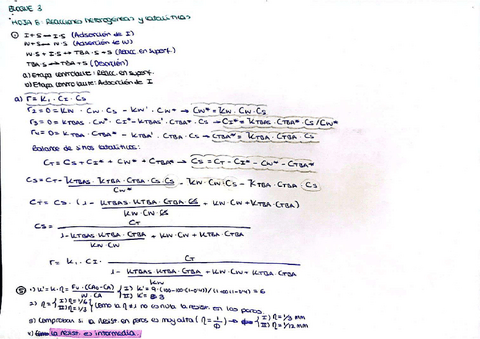 BLOQUE 3
HOJA 6: Reacciones heterogéneas y catalíticas
① I+S ⇌ I·S (Adsorción de I)
W+S ⇌ W·S (Adsorción de W)
W·S + I·S ⇌ TBA·S + S (Reacc. en superf.)
TBA·S ⇌ TBA + S (Desorción)
a) Etapa controlante: Reacc. en superf.
b) Etapa controlante: Adsorción de I
a) r = K₁ · CI · CS
r2 = 0 = KW · CW · CS - KW' · CW* → CW* = KW · CW · CS
r3 = 0 = KTBAS · CW* · CI* - KTBAS' · CTBA* · CS → CI* = KTBAS · CTBA* · CS / CW*
r4 = 0 = KTBA · CTBA* - KTBA' · CTBA · CS → CTBA* = KTBA · CTBA · CS
Balance de sitios catalíticos:
CT = CS + CI* + CW* + CTBA* → CS = CT - CI* - CW* - CTBA*
CS = CT - KTBAS · KTBA · CTBA · CS · CS / CW* - KW · CW · CS - KTBA · CTBA · CS
CT = CS · (1 - KTBAS · KTBA · CTBA · CS / KW · CW · CS + KW · CW + KTBA · CTBA)
CS = CT / 1 - KTBAS · KTBA · CTBA / KW · CW + KW · CW + KTBA · CTBA
r = K₁ · CI · CT / 1 - KTBAS · KTBA · CTBA / KW + KW · CW + KTBA · CTBA
2) η = { I) η = 1/6 II) η = 1/3 } Como la η ≠ 1 no es nula la resist. en los poros.
3) Comprobar si la resist. en poros es muy alta (η = 1/Φ) → { I) η = 1/3 mm II) η = 1/12 mm
4) la resist. es intermedia.